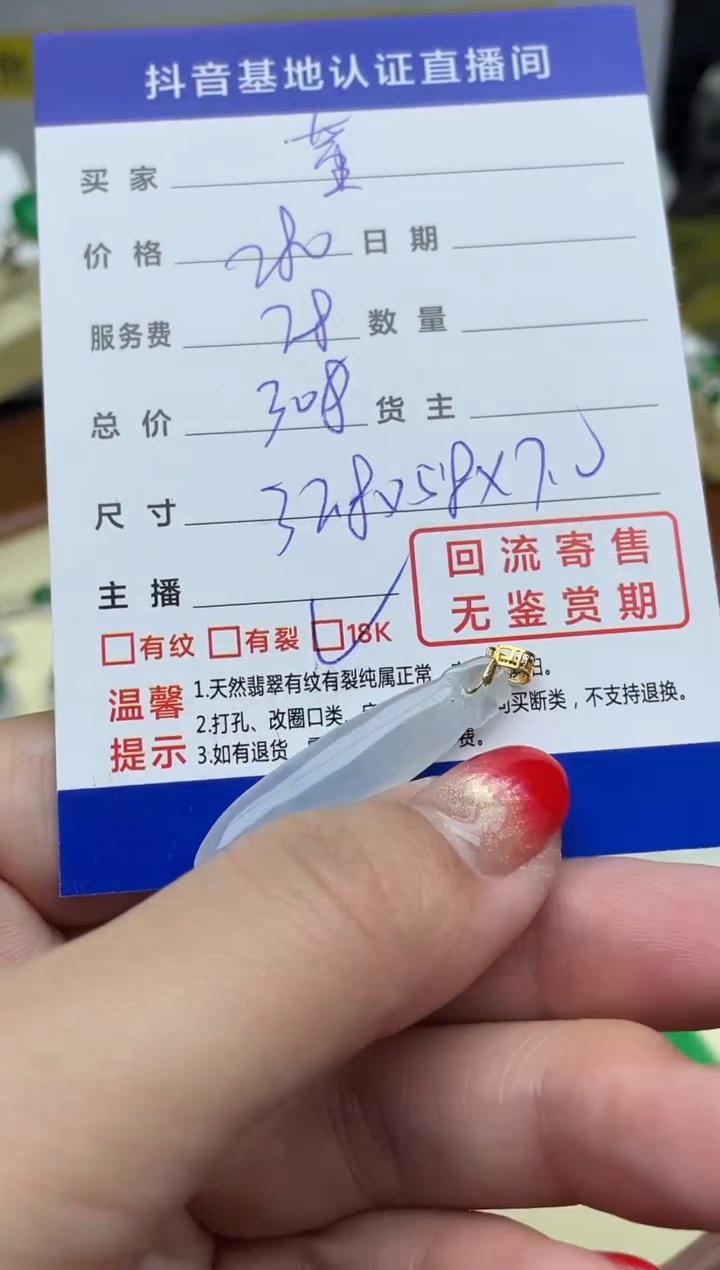 抖音基地认证直播间
买家 董
价格 280 日期
服务费 28 数量
总价 308 货主
尺寸 32.8x5.8x7.0
主播
回流寄售
无鉴赏期
□有纹 □有裂 □18K
温馨提示
1.天然翡翠有纹有裂纯属正常
2.打孔、改圈口类、 买断类，不支持退换。
3.如有退货 费。